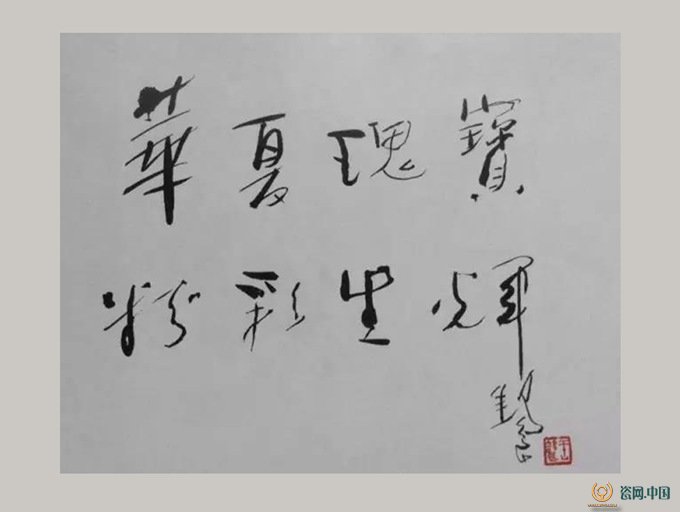 華夏瑰寶
粉彩生輝
瓷网.中国